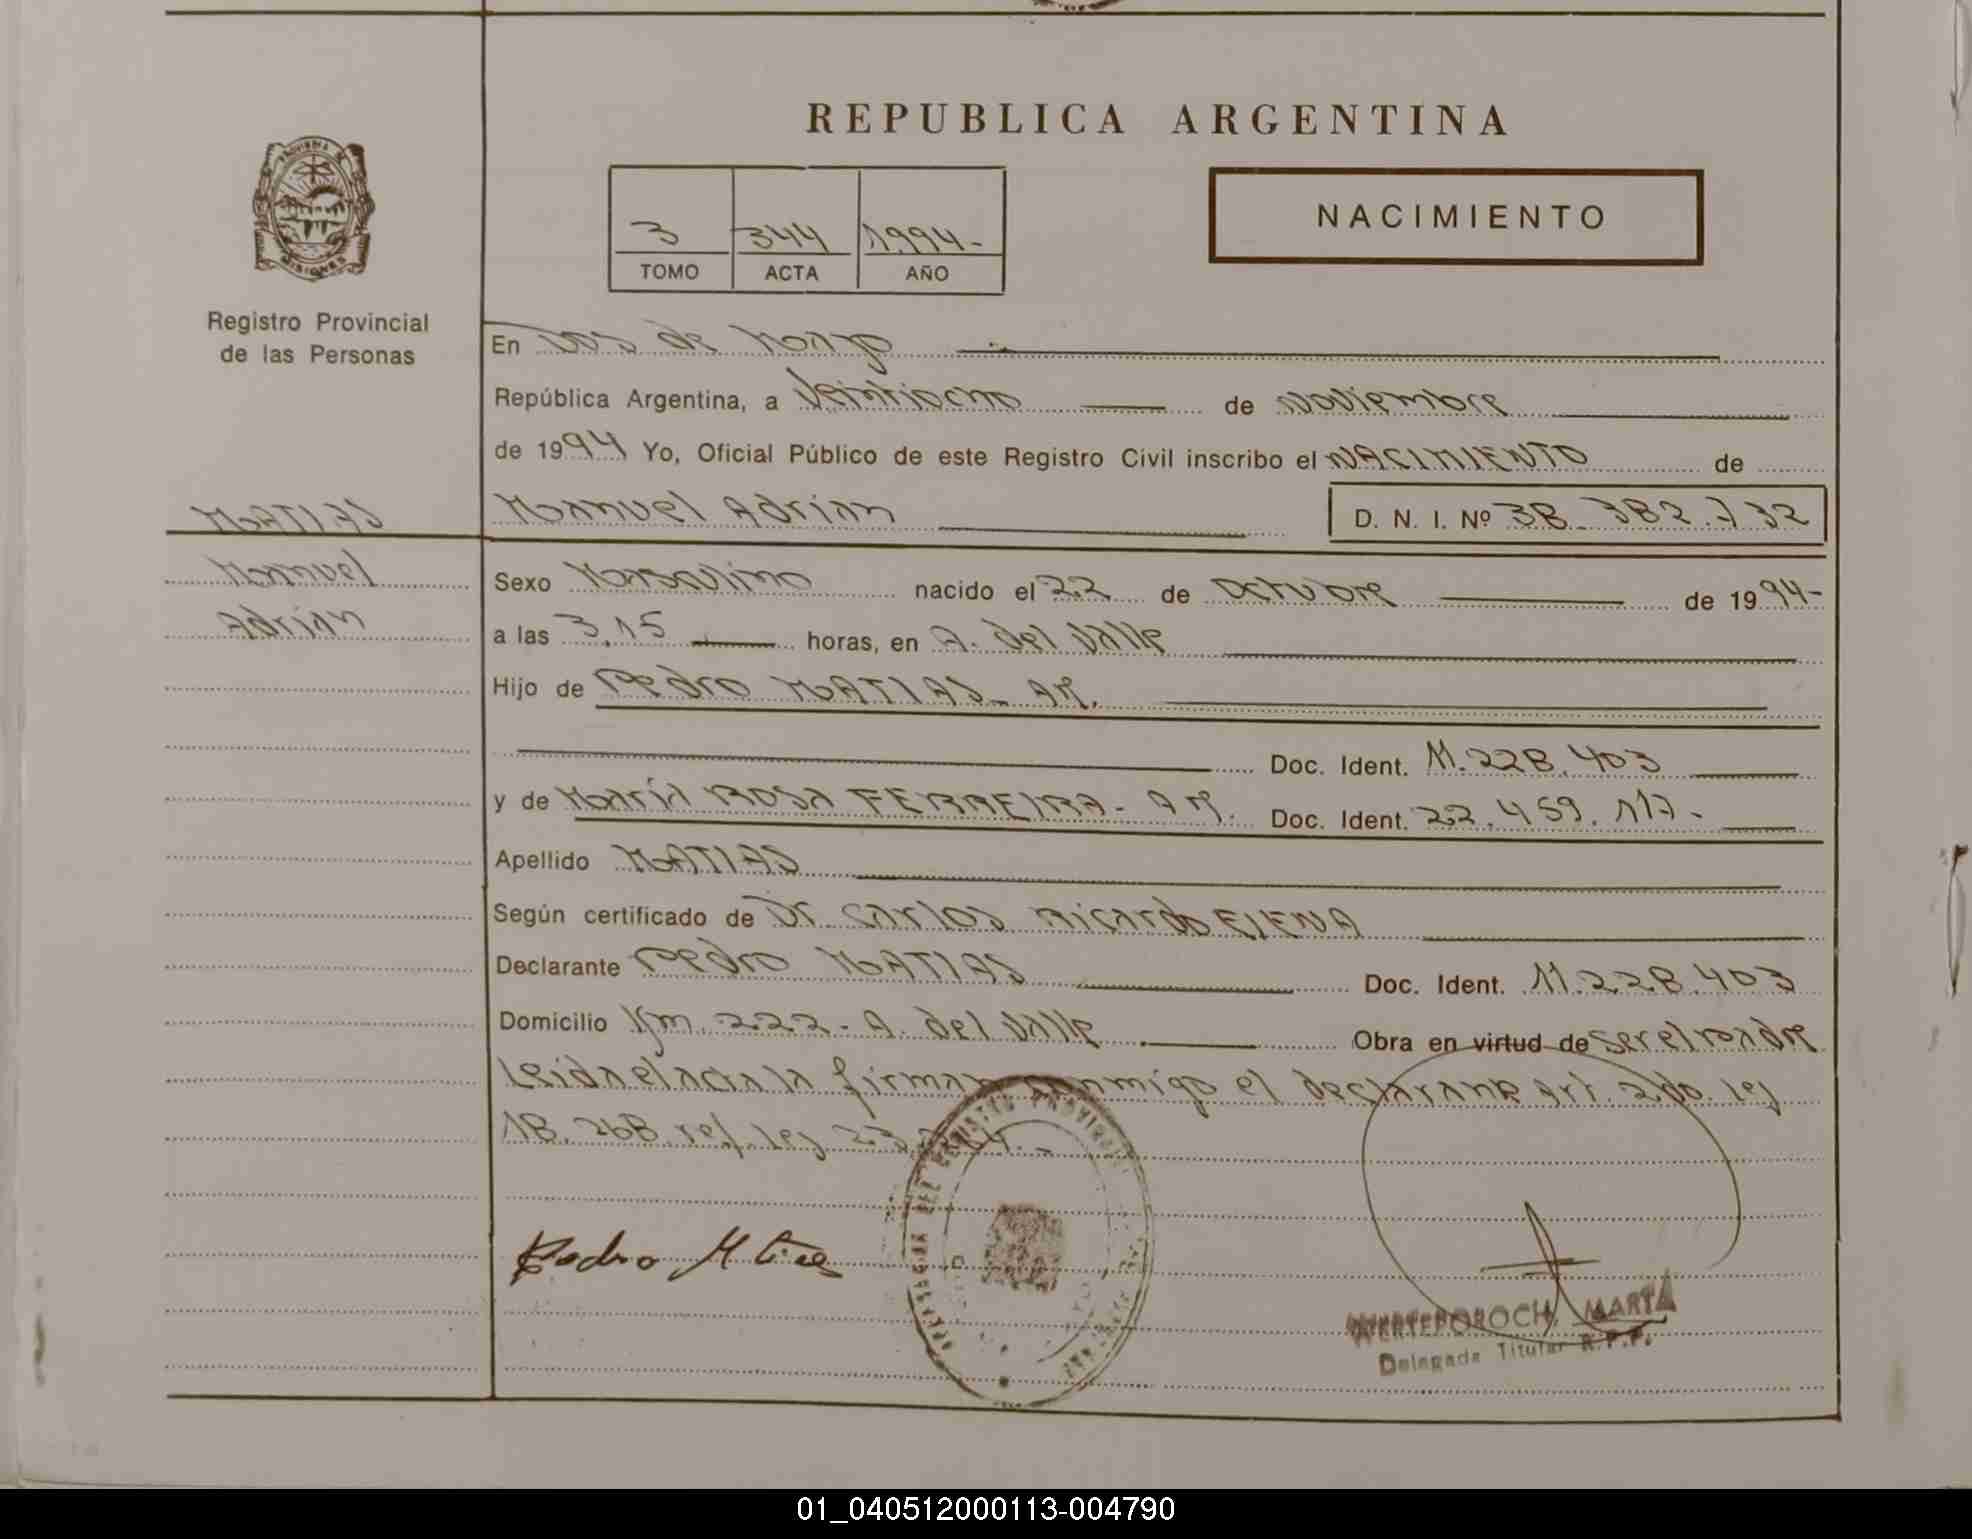 REPUBLICA ARGENTINA
PROVINCIA DE
MISIONES
3 344 1994-
TOMO ACTA AÑO
NACIMIENTO
Registro Provincial
de las Personas
En Dos de Mayo
República Argentina, a Veintiocho de Noviembre
de 1994 Yo, Oficial Público de este Registro Civil inscribo el NACIMIENTO de
Manuel Adrian D. N. I. Nº 38.382.732
MATIAS
Manuel
Adrian
Sexo Masculino nacido el 22 de Octubre de 1994-
a las 3.15 horas, en A. del Valle
Hijo de Pedro MATIAS - AR.
Doc. Ident. 11.228.403
y de María ROSA FERREIRA - AR. Doc. Ident. 22.459.117-
Apellido MATIAS
Según certificado de Dr. Carlos Ricardo ELENA
Declarante Pedro MATIAS Doc. Ident. 11.228.403
Domicilio Km. 222 - A. del Valle Obra en virtud de ser el padre
Leida el acta la firman conmigo el declarante Art. 2do. Ley
18.268 ref. Ley 23.
Pedro
MARTA
Delegada Titular R.P.P.
01_040512000113-004790